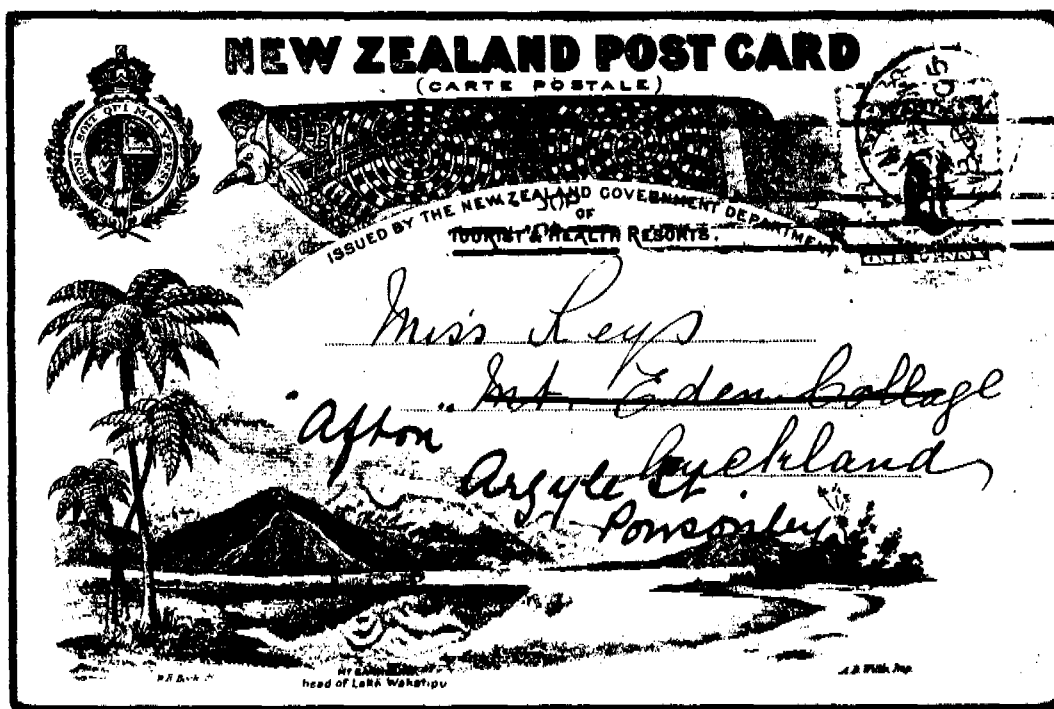 NEW ZEALAND POST CARD
(CARTE POSTALE)
HONI SOIT QUI MAL Y PENSE
ISSUED BY THE NEW ZEALAND GOVERNMENT DEPARTMENT
OF
TOURIST & HEALTH RESORTS.
ONE PENNY
Miss Keys
Mt. Eden College
"Afton"
Auckland
Argyle St
Ponsonby
head of Lake Wakatipu
A.D. Willis Imp.